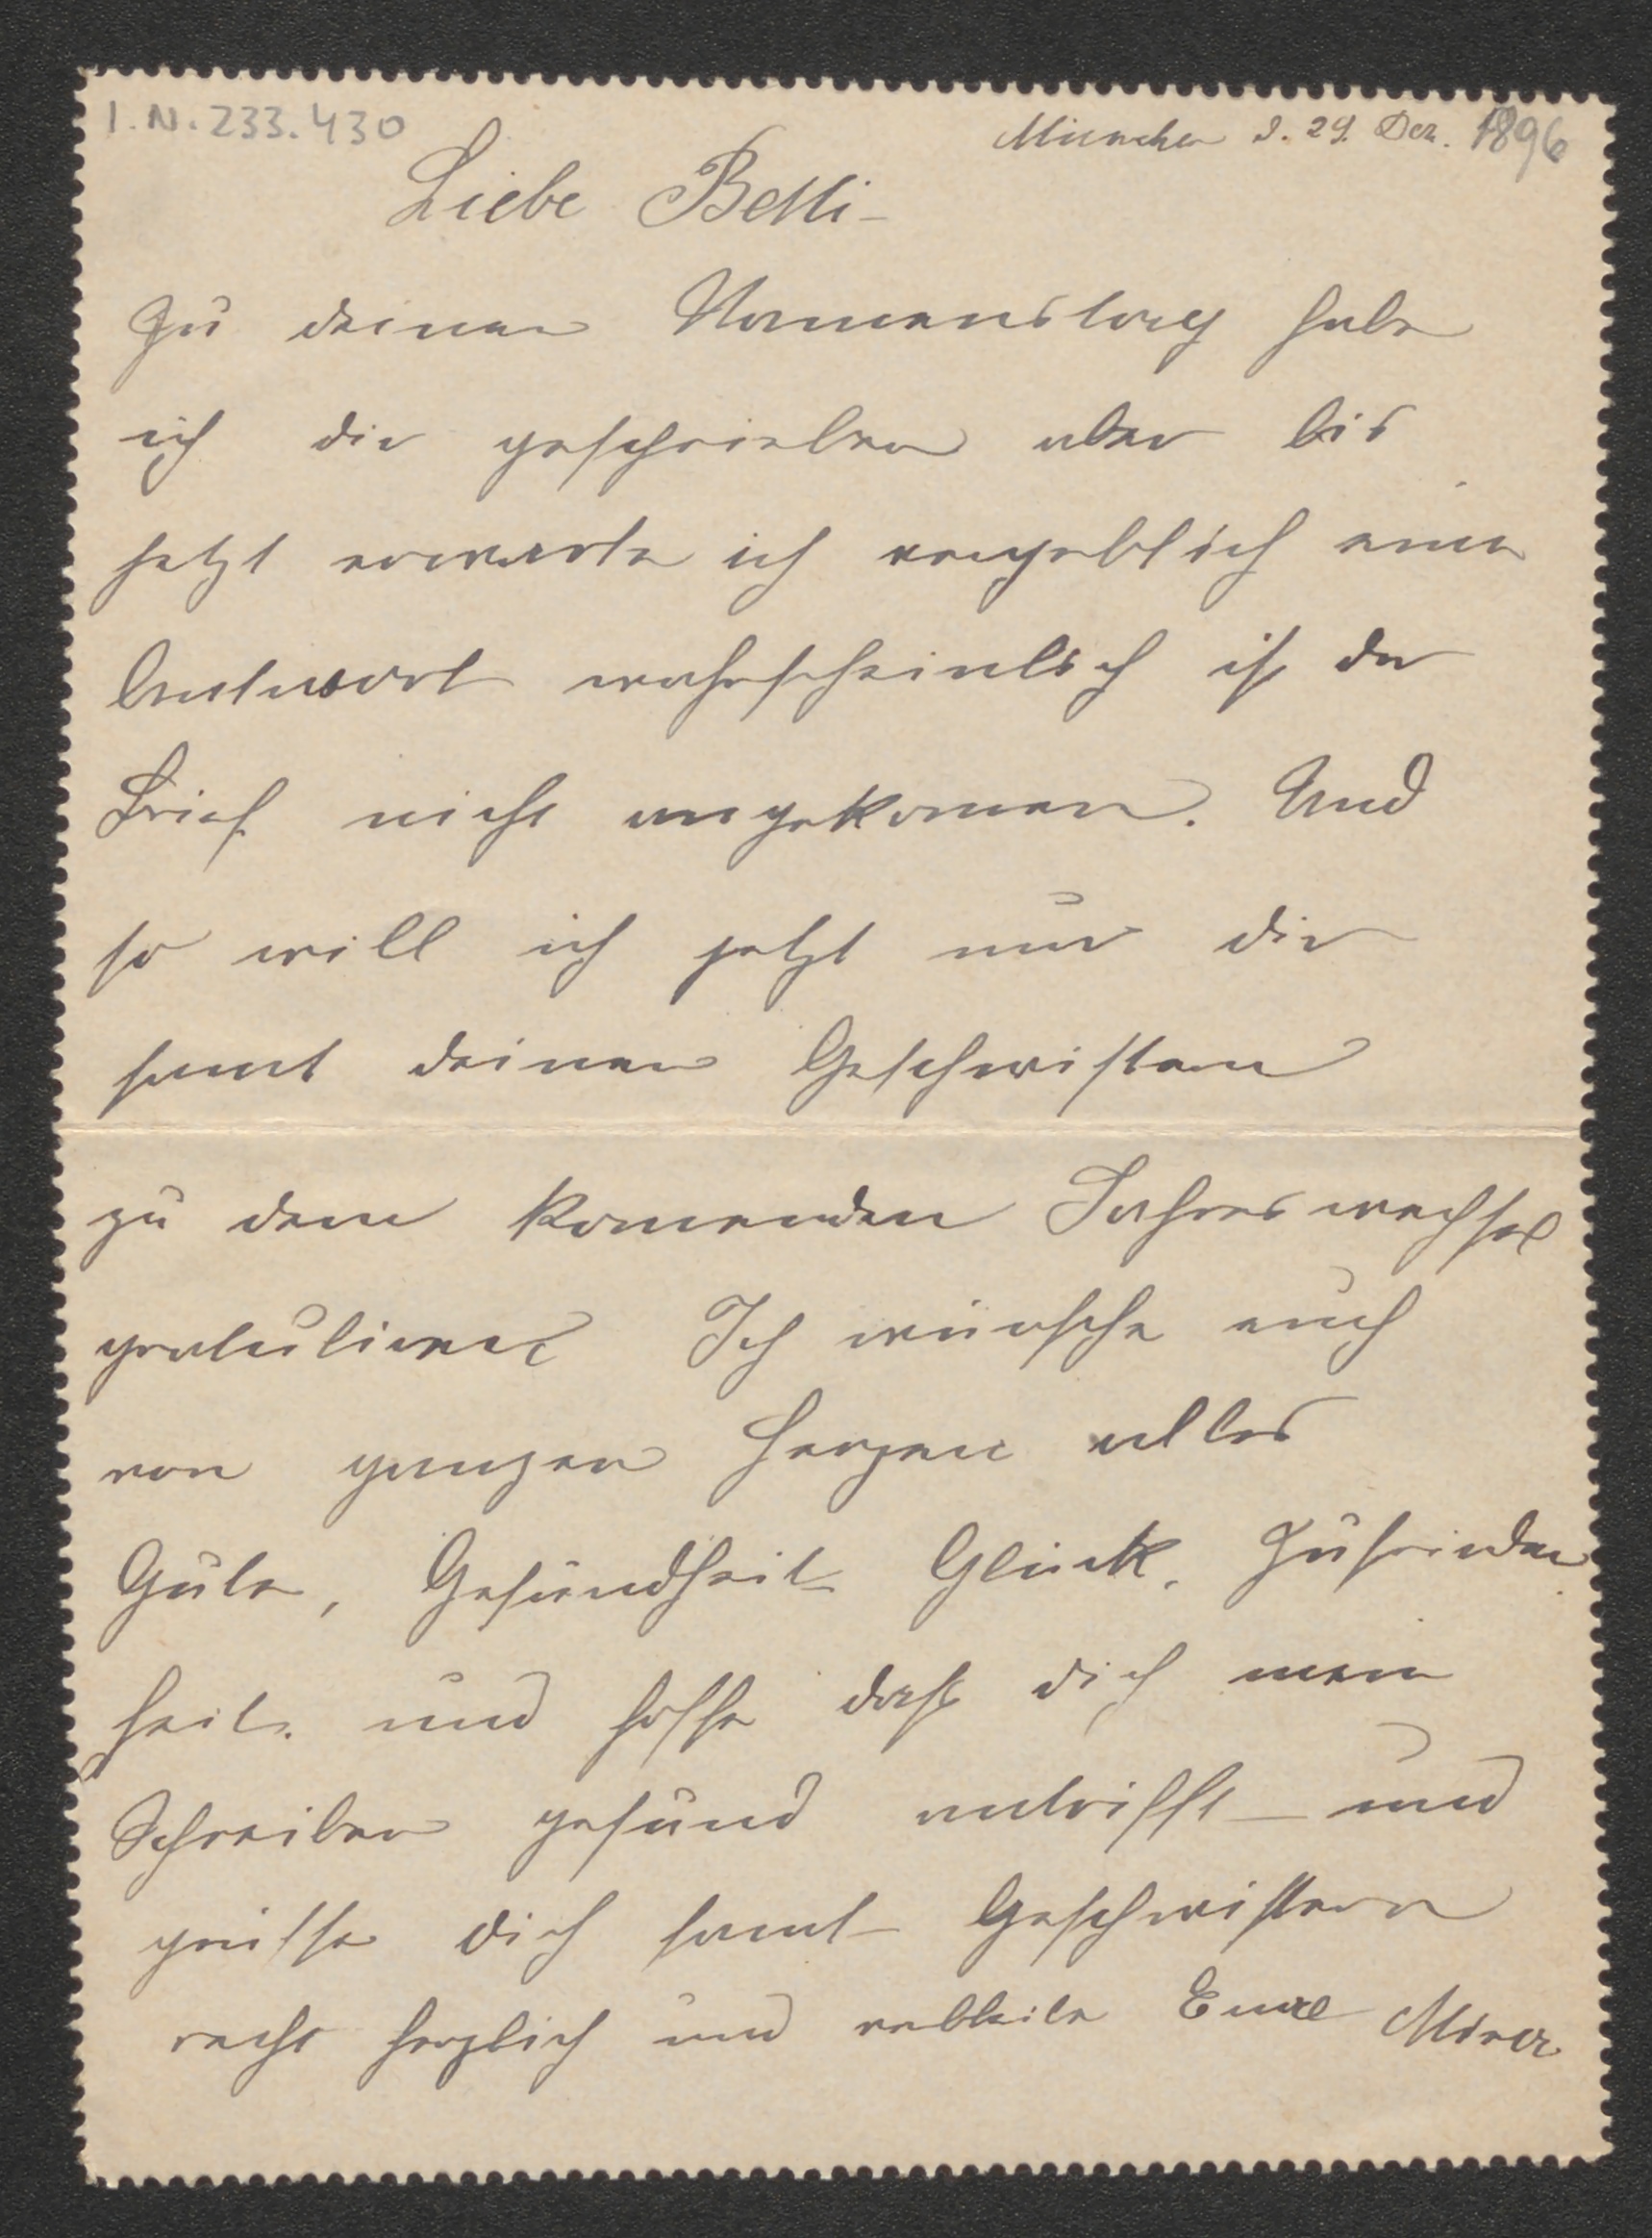 I.N. 233.430
München d. 29. Dez. 1896
Liebe Betti-
Zu deinen Namenstag habe
ich dir geschrieben aber bis
jetzt erwarte ich vergeblich eine
Antwort wahrscheinlich ist der
Brief nicht angekomen. Und
so will ich jetzt nur dir
samt deinen Geschwistern
zu dem komenden Jahreswechsel
gratulieren Ich wünsche euch
von ganzen Herzen alles
Gute, Gesundheit Glück, Zufrieden
heit. und hoffe dass dich mein
Schreiben gesund antrifft – und
grüsse dich samt Geschwistern
recht herzlich und verbleibe Eure